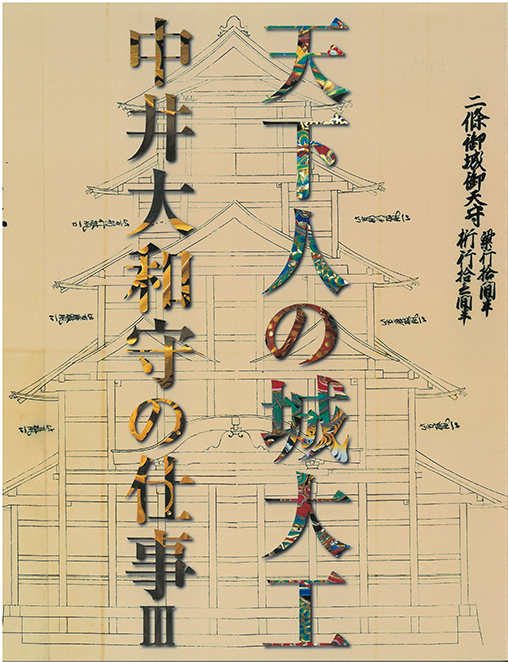 二條御城御天守
梁行拾間半
桁行拾二間半
天下人の城大工
中井大和守の仕事Ⅲ